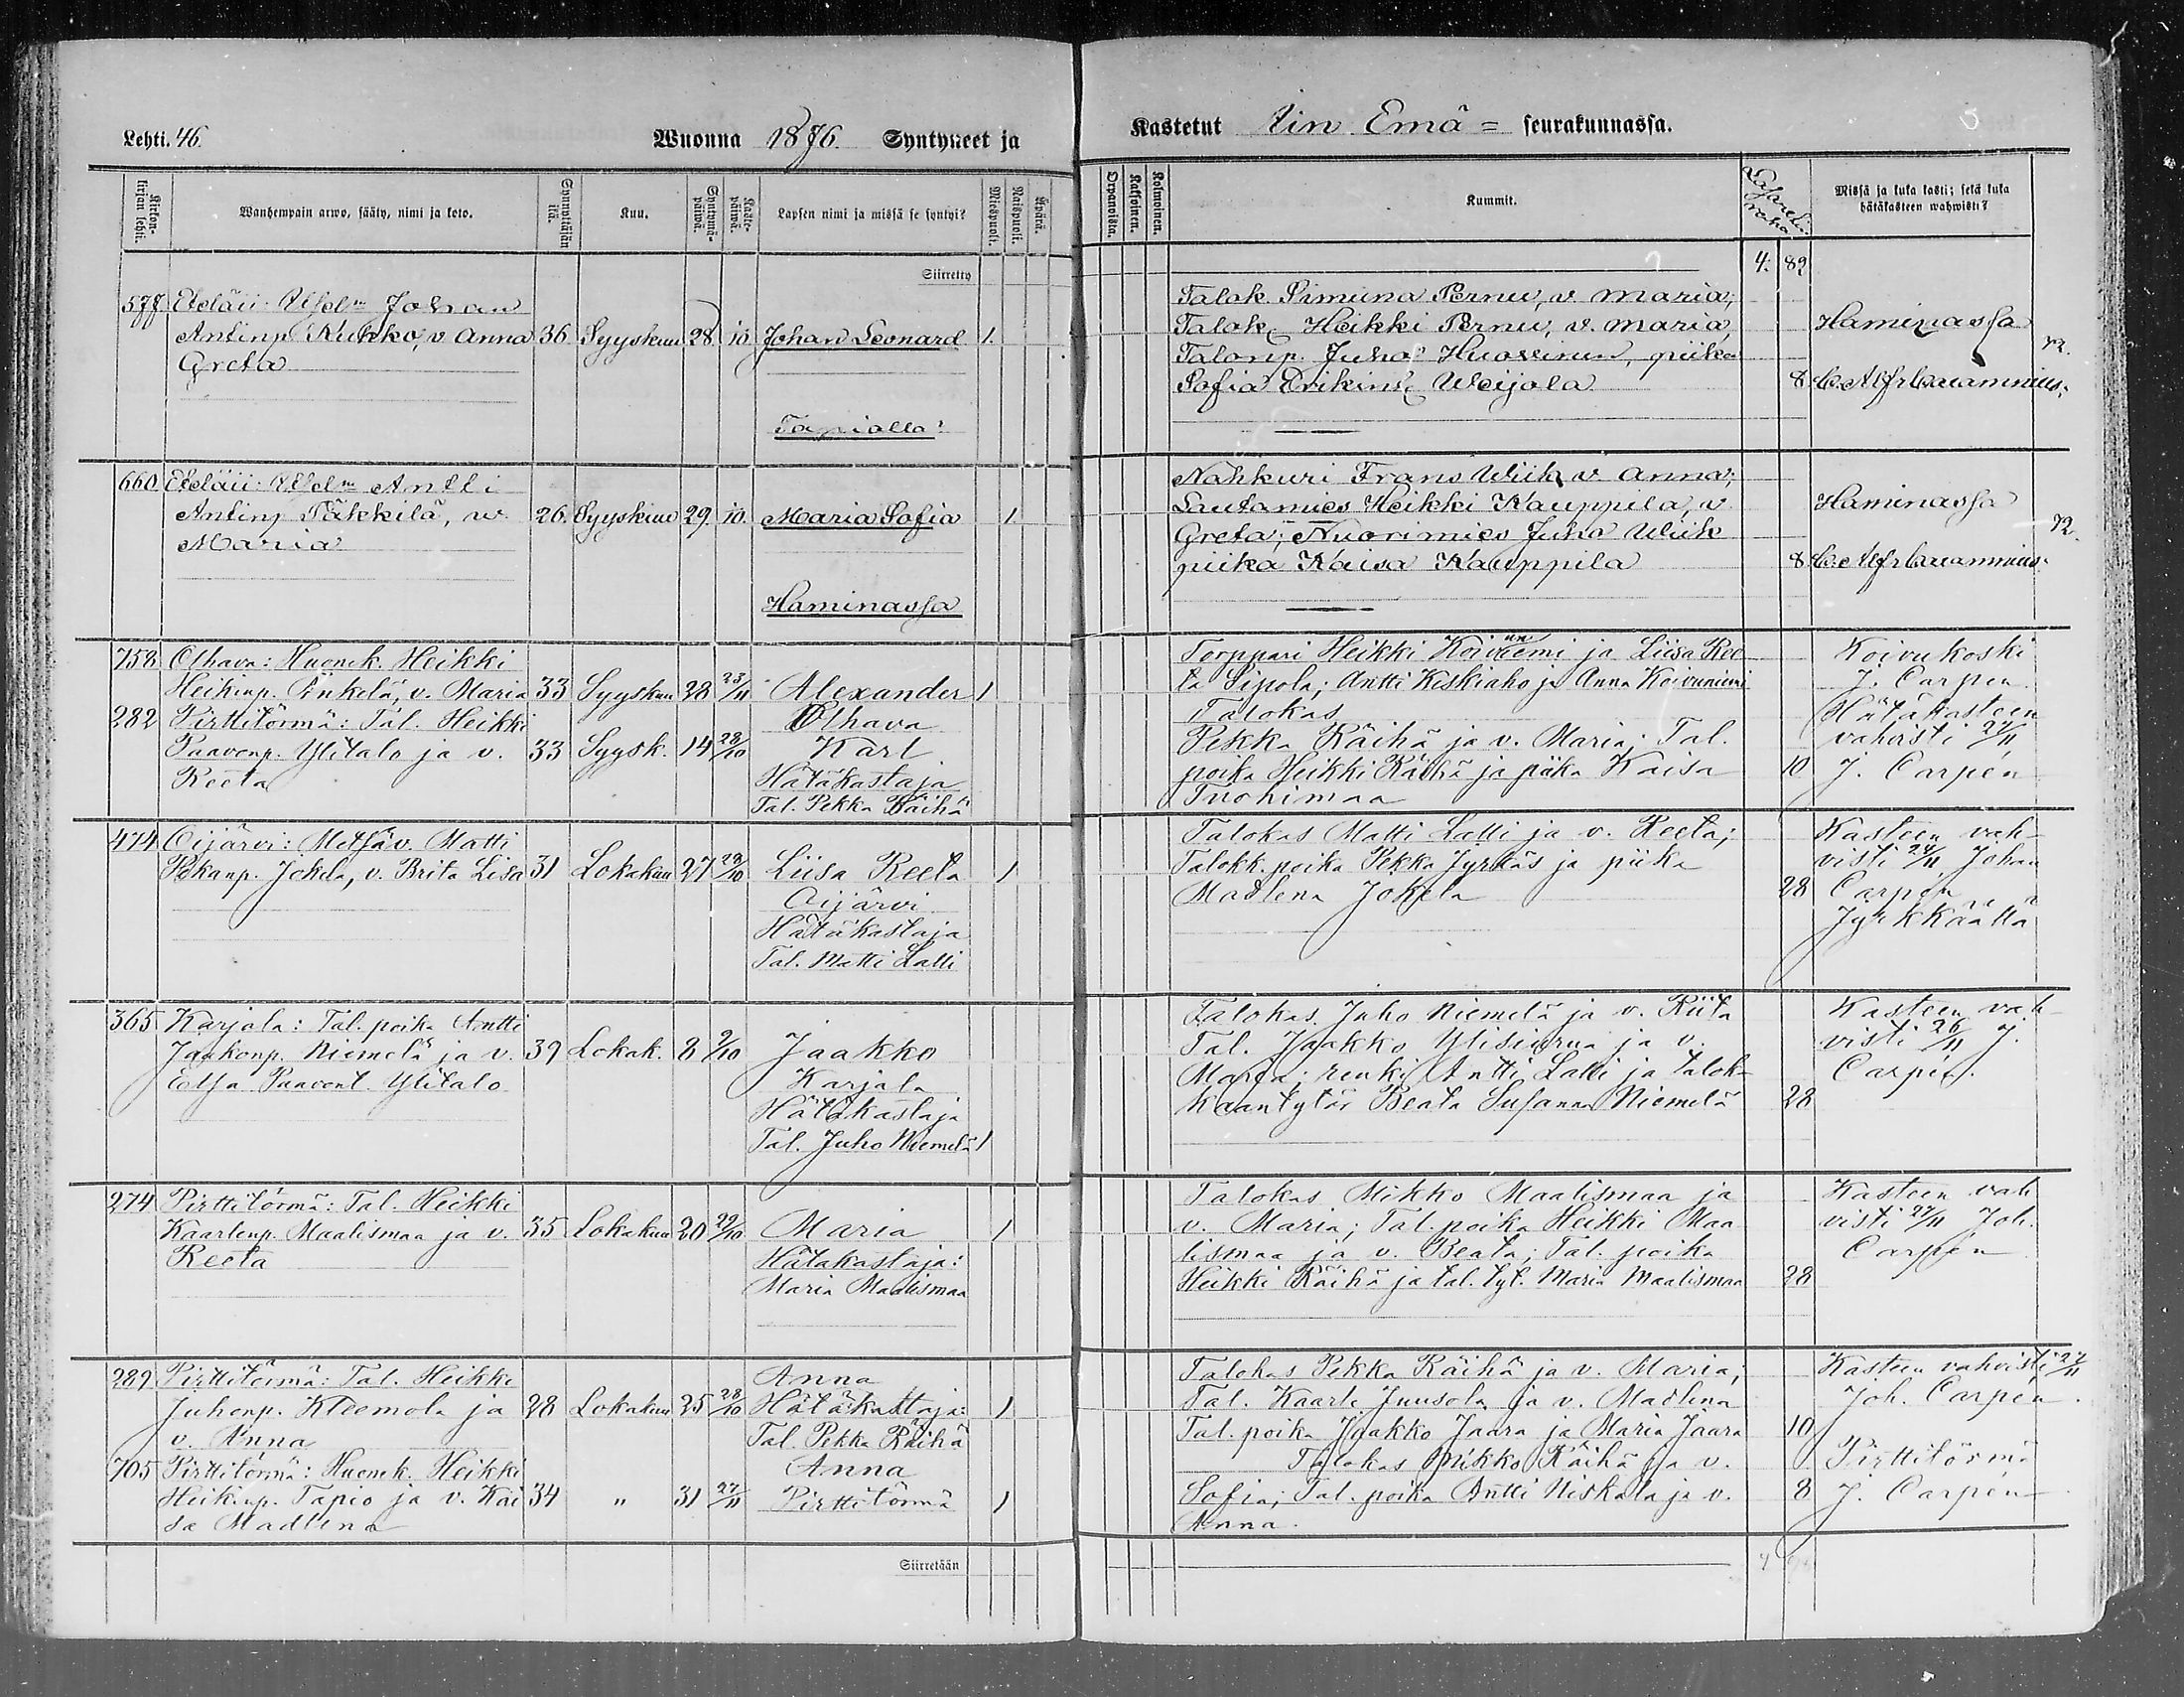 Lehti. 46.
Wuonna 1876. Syntyneet ja
Kirkonkirjan lehti.
Wanhempain arwo, sääty, nimi ja koto.
Synnyttäjän ikä.
Kuu.
Syntymäpäivä.
Kastepäivä.
Lapsen nimi ja missä se syntyi?
Miespuoli.
Naispuoli.
Äpärä.
Siirretty
577. Eteläii: Johan
Antinp. Kukko, v. Anna 36 Syyskuu 28. 10 Johan Leonard 1.
Greta
Tapialla
660 Eteläii: Antti
Antinp Täkkilä, w. 26. Syyskuu 29. 10. Maria Sofia 1.
Maria
Haminassa
758 Olhava: Huonek. Heikki
Heikinp. v. Maria 33 Syyskuu 28 23/11 Alexander 1
282 Pirttitörmä: Tal. Heikki Olhava
Paavonp. Ylitalo ja v. 33 Syysk. 14 28/10 Karl
Reeta Hätäkastaja
Tal. Pekka Räihä
474 Oijärvi: Metsäv. Matti
Pekanp. Jokela, v. Brita Lisa 31 Lokakuu 27 29/10 Liisa Reeta 1
Oijärvi
Hätäkastaja
Tal. Matti Lalli
365 Karjala: Tal. poika Antti
Jaakonp. Niemelä ja v. 39 Lokak. 8 9/10 Jaakko
Edla Paavont. Ylitalo Karjala
Hätäkastaja
Tal. Juho Niemelä 1
274 Pirttitörmä: Tal. Heikki
Kaarlenp. Maalismaa ja v. 35 Lokakuu 20 22/10 Maria 1
Reeta Hätakastaja:
Maria Maalismaa
289 Pirttitörmä: Tal. Heikki Anna
Juhonp. Kleemola ja 28 Lokakuu 25 28/10 Hätäkastaja: 1
v. Anna Tal. Pekka Räihä
705 Pirttitörmä: Huonek. Heikki Anna
Heikinp. Tapio ja v. Kai 34 " 31 27/11 Pirttitörmä 1
sa Madlena
Siirretään
Kastetut Iin Emä = seurakunnassa.
Orpanoista.
Kaksoinen.
Kolmoinen.
Kummit.
Missä ja kuka kasti; sekä kuka hätäkasteen wahwisti?
4. 89
Talok. Simuna Pernu, v. Maria;
Talok. Heikki Pernu, v. Maria, Haminassa
Talonp. Juho Huovinen, piika
Sofia Weijola 8
Nahkuri Frans Wiik v. Anna;
Lautamies Heikki Kauppila, v. Haminassa
Greta; Nuorimies Juho Wiik
piika Kaisa Kauppila 8
Torppari Heikki Koivuniemi ja Liisa Ree Koivukoski
ta Sipola; Antti Keskiaho ja Anna Koivuniemi J. Carpén
Talokas Hätäkasteen
Pekka Räihä ja v. Maria; Tal. vahvisti 27/11
poika Heikki Räihä ja piika Kaisa 10 J. Carpén
Tuohimaa
Talokas Matti Lalli ja v. Reeta; Kasteen vah-
Talokk. poika Pekka Jyrkäs ja piika visti 24/11 Johan
Madlena Jokela 28 Carpén
Jyrkkäällä
Talokas Juho Niemelä ja v. Riita Kasteen vah-
Tal. Jaakko Ylisiurua ja v. visti 26/11 J.
Maria; renki Antti Lalli ja talok- Carpén.
kaantytär Beata Susanna Niemelä 28
Talokas Mikko Maalismaa ja Kasteen vah
v. Maria; Tal. poika Heikki Maa visti 27/11 Joh.
lismaa ja v. Beata; Tal. poika Carpén
Heikki Räihä ja tal. tyt. Maria Maalismaa 28
Talokas Pekka Räihä ja v. Maria; Kasteen vahvisti 27/11
Tal. Kaarle Juusola ja v. Madlena Joh. Carpén.
Tal. poika Jaakko Jaara ja Maria Jaara 10
Talokas Mikko Räihä ja v. Pirttitörmä
Sofia; Tal. poika Antti Niskala ja v. 8 J. Carpén
Anna.